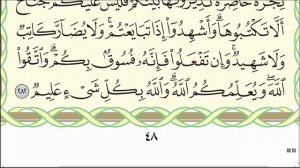 تِجَٰرَةً حَاضِرَةً تُدِيرُونَهَا بَيْنَكُمْ فَلَيْسَ عَلَيْكُمْ جُنَاحٌ
أَلَّا تَكْتُبُوهَا ۗ وَأَشْهِدُوٓا۟ إِذَا تَبَايَعْتُمْ ۚ وَلَا يُضَآرَّ كَاتِبٌ
وَلَا شَهِيدٌ ۚ وَإِن تَفْعَلُوا۟ فَإِنَّهُۥ فُسُوقٌۢ بِكُمْ ۗ وَٱتَّقُوا۟
ٱللَّهَ ۖ وَيُعَلِّمُكُمُ ٱللَّهُ ۗ وَٱللَّهُ بِكُلِّ شَىْءٍ عَلِيمٌ ٢٨٢
٤٨